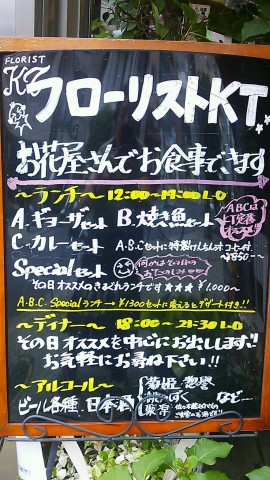 FLORIST
KT フローリストKT
お花屋さんでお食事できます
〜ランチ〜 12:00〜14:00 L.O
A.ギョーザセット B.焼き魚セット
ABCは
KT定番
C.カレーセット A.B.Cセットに特製けんちん コーヒー付
¥850-
Specialセット 何かはその日の
おたのしみ
その日オススメのきまぐれランチです★★★ ¥1,000〜
A.B.C.Specialランチ→¥1300セットに変えるとデザート付き!!
〜ディナー〜 18:00〜21:30 L.O
その日オススメを中心にお出しします!!
お気軽にお尋ね下さい!!
〜アルコール〜
ビール各種.日本酒
菊姫
など…